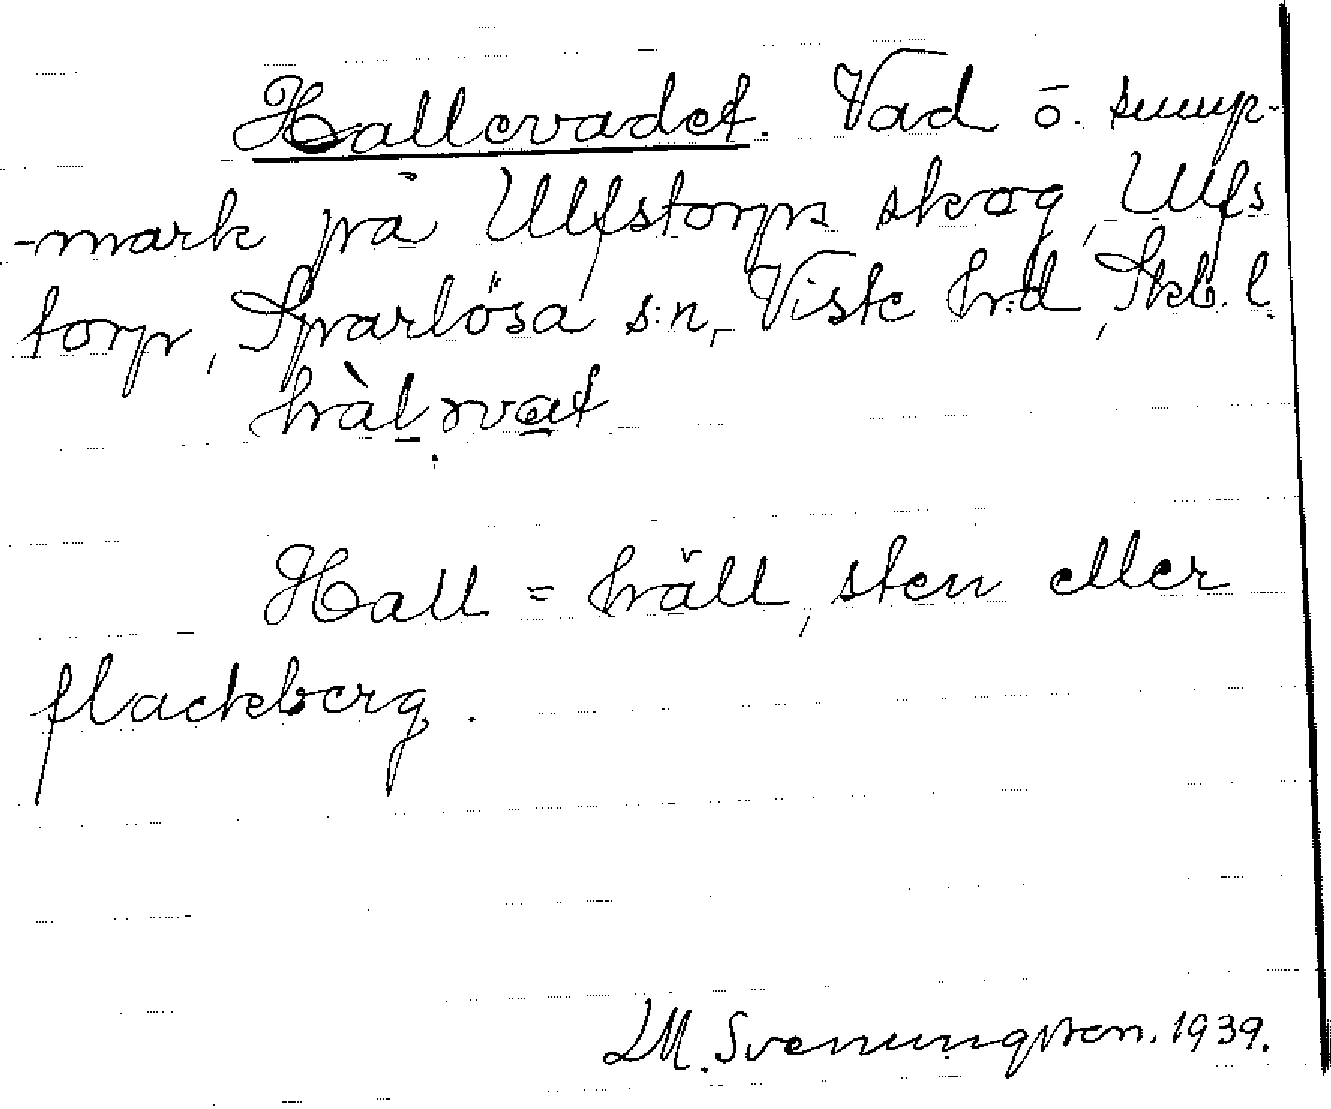 Hallevadet. Vad o. sump-
-mark på Ulfstorps skog, Ulfs
torp, Sparlösa s:n, Viste hrd, Skb. l.
hàl,vat
Hall = häll, sten eller
flackberg.
LM. Svenungsson. 1939.